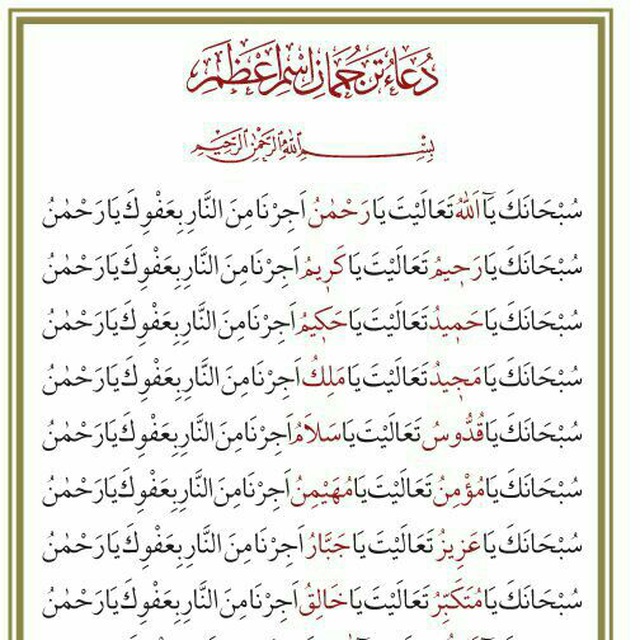 دُعَاءُ تَرْجُمَانِ اسْمِ اَعْظَمْ
بِسْمِ اللّٰهِ الرَّحْمٰنِ الرَّحِيمِ
سُبْحَانَكَ يَآ اَللّٰهُ تَعَالَيْتَ يَا رَحْمٰنُ اَجِرْنَا مِنَ النَّارِ بِعَفْوِكَ يَا رَحْمٰنُ
سُبْحَانَكَ يَا رَحِيمُ تَعَالَيْتَ يَا كَرِيمُ اَجِرْنَا مِنَ النَّارِ بِعَفْوِكَ يَا رَحْمٰنُ
سُبْحَانَكَ يَا حَمِيدُ تَعَالَيْتَ يَا حَكِيمُ اَجِرْنَا مِنَ النَّارِ بِعَفْوِكَ يَا رَحْمٰنُ
سُبْحَانَكَ يَا مَجِيدُ تَعَالَيْتَ يَا مَلِكُ اَجِرْنَا مِنَ النَّارِ بِعَفْوِكَ يَا رَحْمٰنُ
سُبْحَانَكَ يَا قُدُّوسُ تَعَالَيْتَ يَا سَلَامُ اَجِرْنَا مِنَ النَّارِ بِعَفْوِكَ يَا رَحْمٰنُ
سُبْحَانَكَ يَا مُؤْمِنُ تَعَالَيْتَ يَا مُهَيْمِنُ اَجِرْنَا مِنَ النَّارِ بِعَفْوِكَ يَا رَحْمٰنُ
سُبْحَانَكَ يَا عَزِيزُ تَعَالَيْتَ يَا جَبَّارُ اَجِرْنَا مِنَ النَّارِ بِعَفْوِكَ يَا رَحْمٰنُ
سُبْحَانَكَ يَا مُتَكَبِّرُ تَعَالَيْتَ يَا خَالِقُ اَجِرْنَا مِنَ النَّارِ بِعَفْوِكَ يَا رَحْمٰنُ